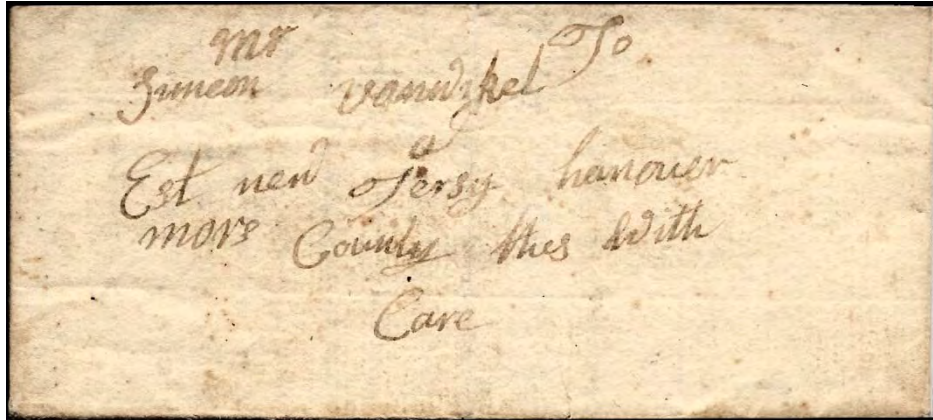 mr To
Simeon vanwzkel
a
Est new Jersy hanover
mors County thes with
Care